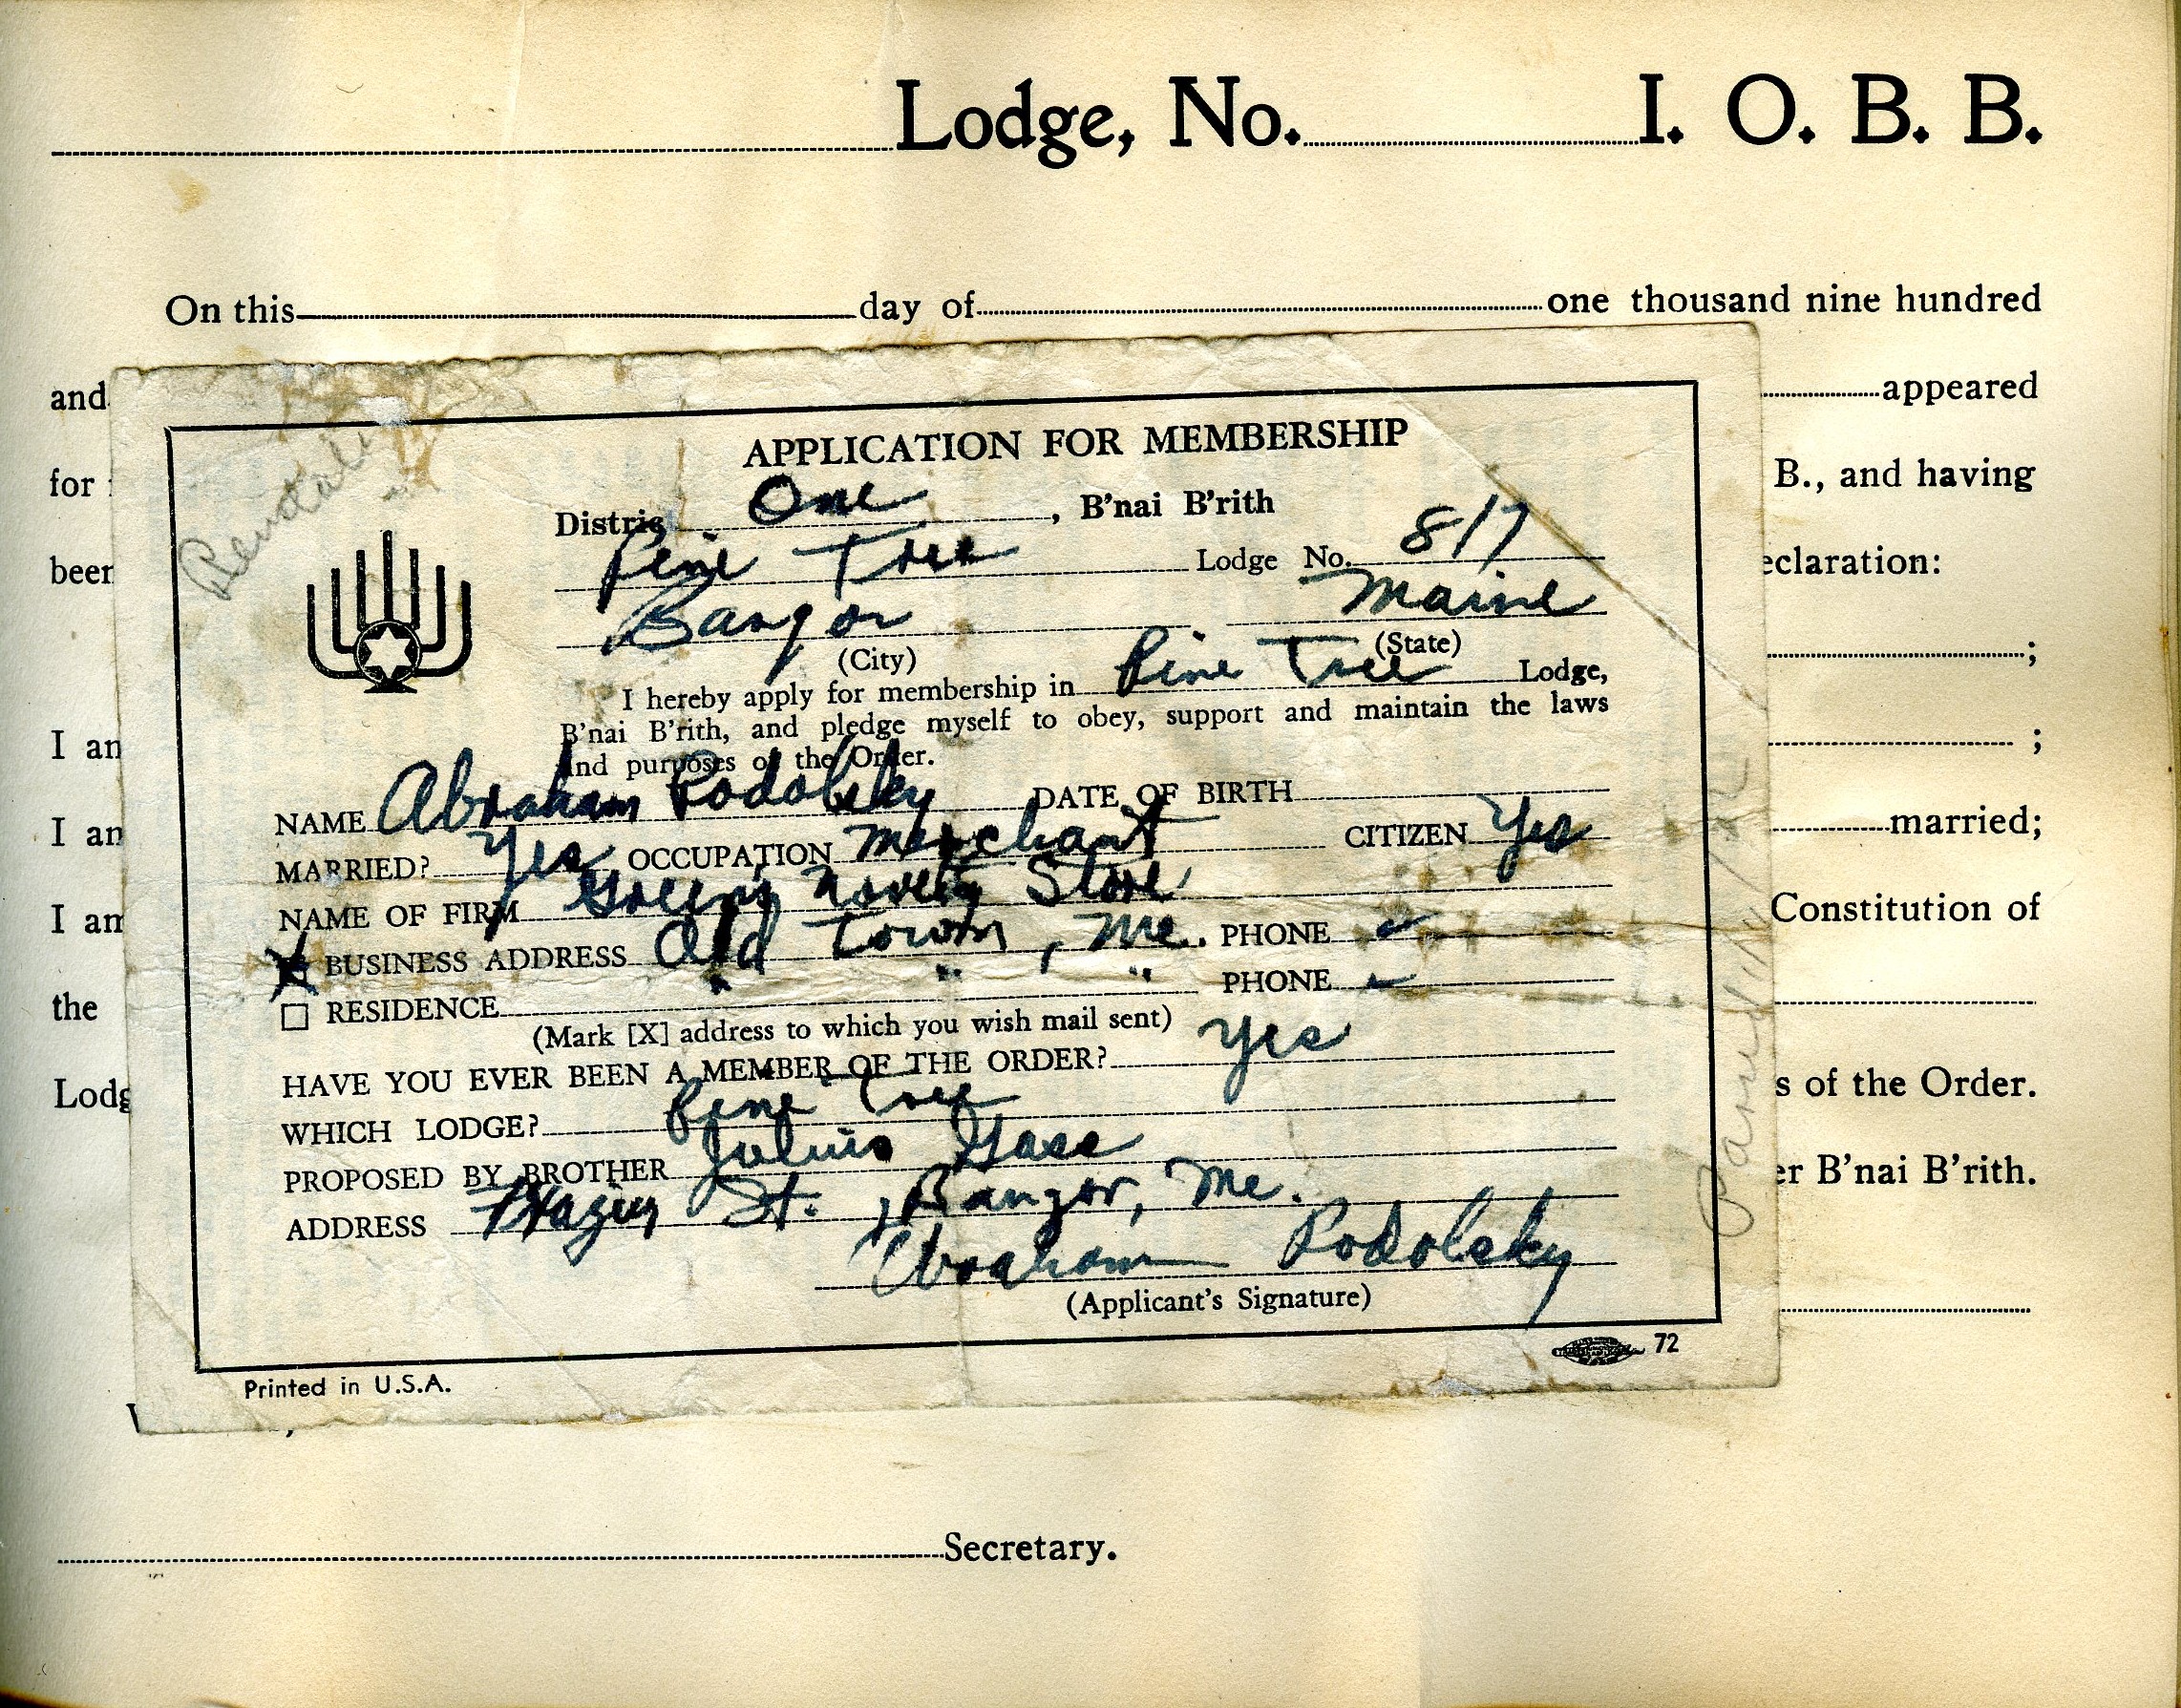 Lodge, No. I. O. B. B.
On this day of one thousand nine hundred
and appeared
for B., and having
been eclaration:
;
I am ;
I am married;
I am Constitution of
the
Lodg s of the Order.
er B'nai B'rith.
APPLICATION FOR MEMBERSHIP
District One, B'nai B'rith
Pine Tree Lodge No. 817
Bangor Maine
(City) (State)
I hereby apply for membership in Pine Tree Lodge,
B'nai B'rith, and pledge myself to obey, support and maintain the laws
and purposes of the Order.
NAME Abraham Podolsky DATE OF BIRTH
MARRIED? Yes OCCUPATION Merchant CITIZEN Yes
NAME OF FIRM Green's Novelty Store
BUSINESS ADDRESS Old Town, Me. PHONE -
RESIDENCE " " " PHONE -
(Mark [X] address to which you wish mail sent)
HAVE YOU EVER BEEN A MEMBER OF THE ORDER? Yes
WHICH LODGE? Pine Tree
PROPOSED BY BROTHER Julius Gass
ADDRESS St., Bangor, Me.
Abraham Podolsky
(Applicant's Signature)
72
Printed in U.S.A.
Secretary.